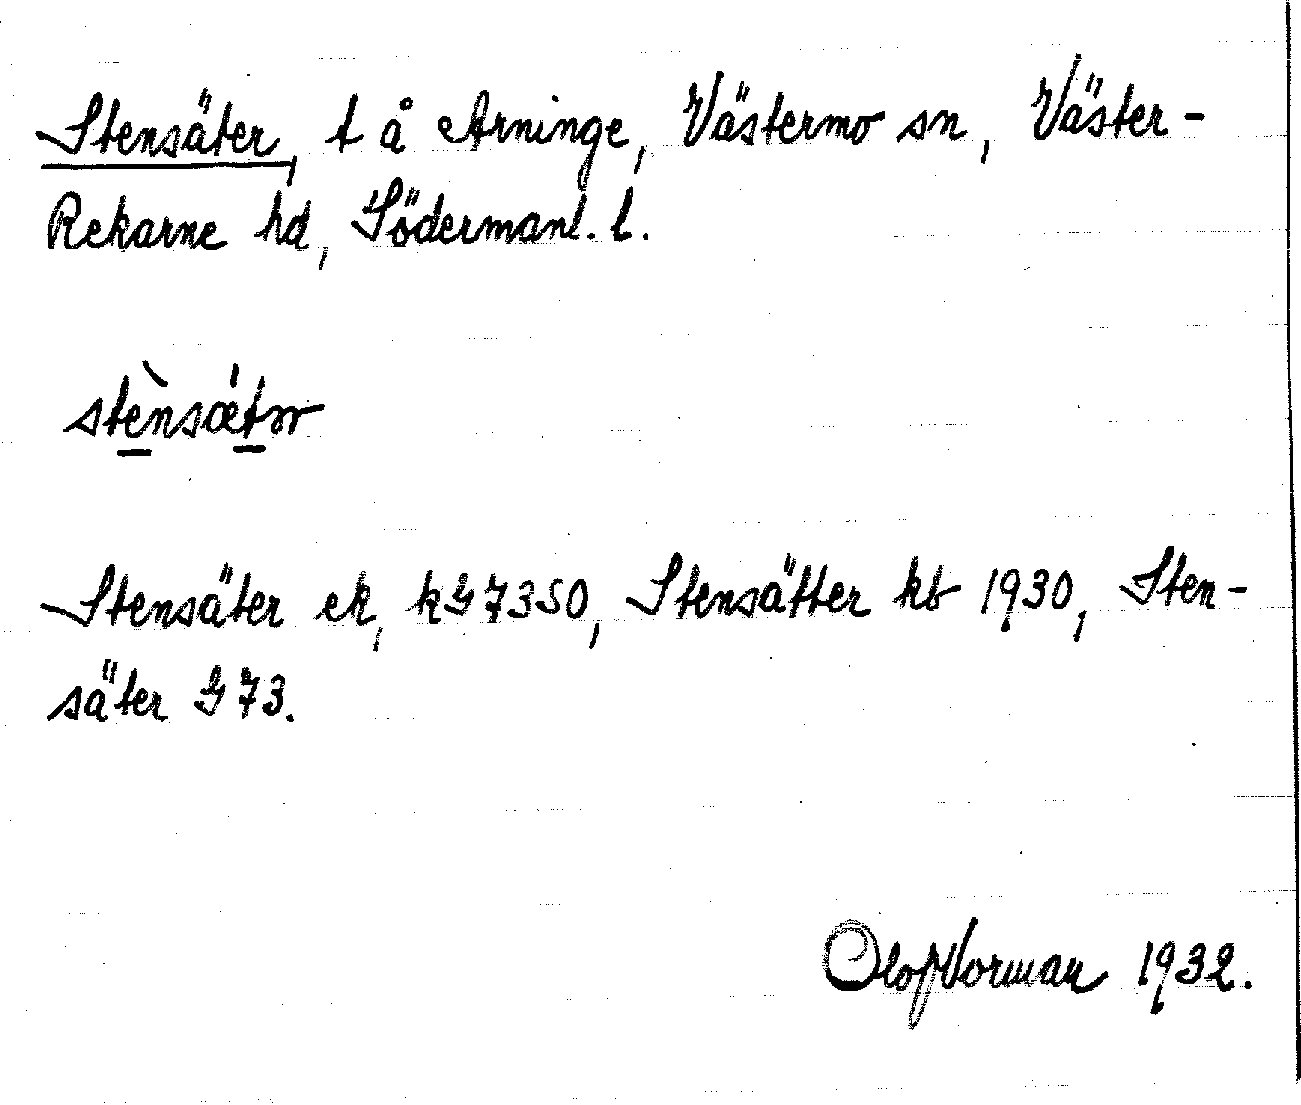 Stensäter, t å Arninge, Västermo sn, Väster-
Rekarne hd, Södermanl. l.
stènsætr
Stensäter ek, kG7350, Stensätter kb 1930, Sten-
säter G73.
Olof Norman 1932.